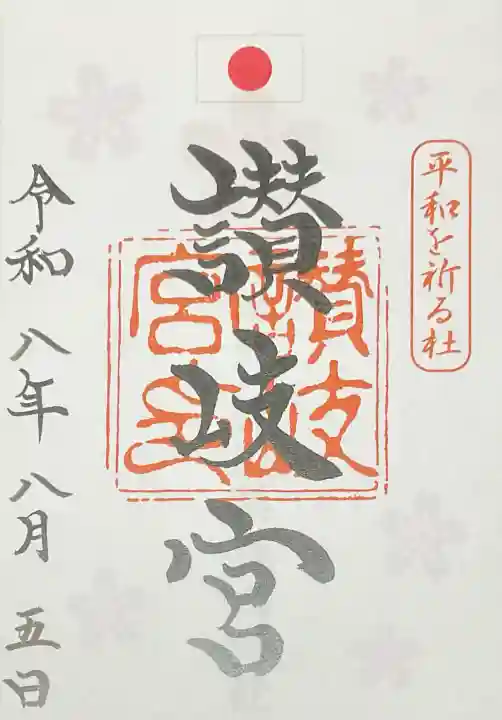 平和を祈る杜
讃岐宮
令和八年八月五日